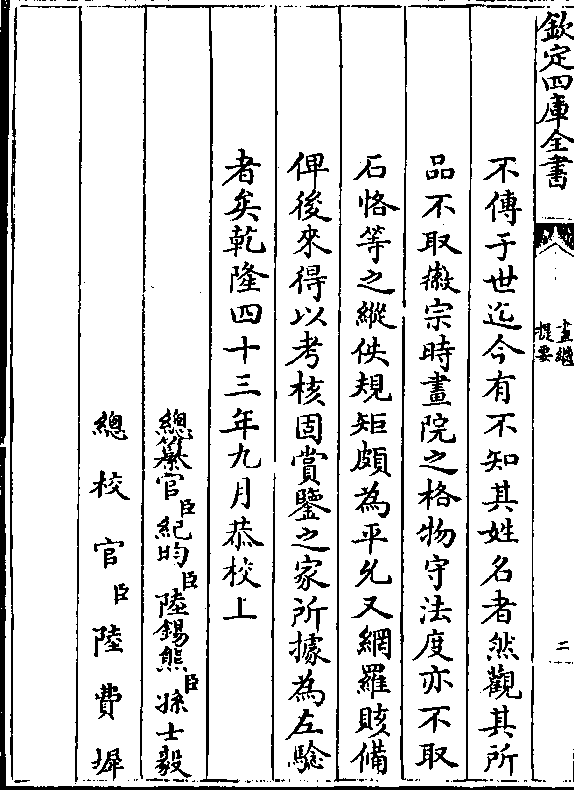 欽定四庫全書
畫繼
提要
二
不傳于世迄今有不知其姓名者然觀其所
品不取徽宗時畫院之格物守法度亦不取
石恪等之縱佚規矩頗為平允又網羅賅備
俾後來得以考核固賞鑒之家所據為左騐
者矣乾隆四十三年九月恭校上
總纂官臣紀昀臣陸錫熊臣孫士毅
總校官臣陸費墀